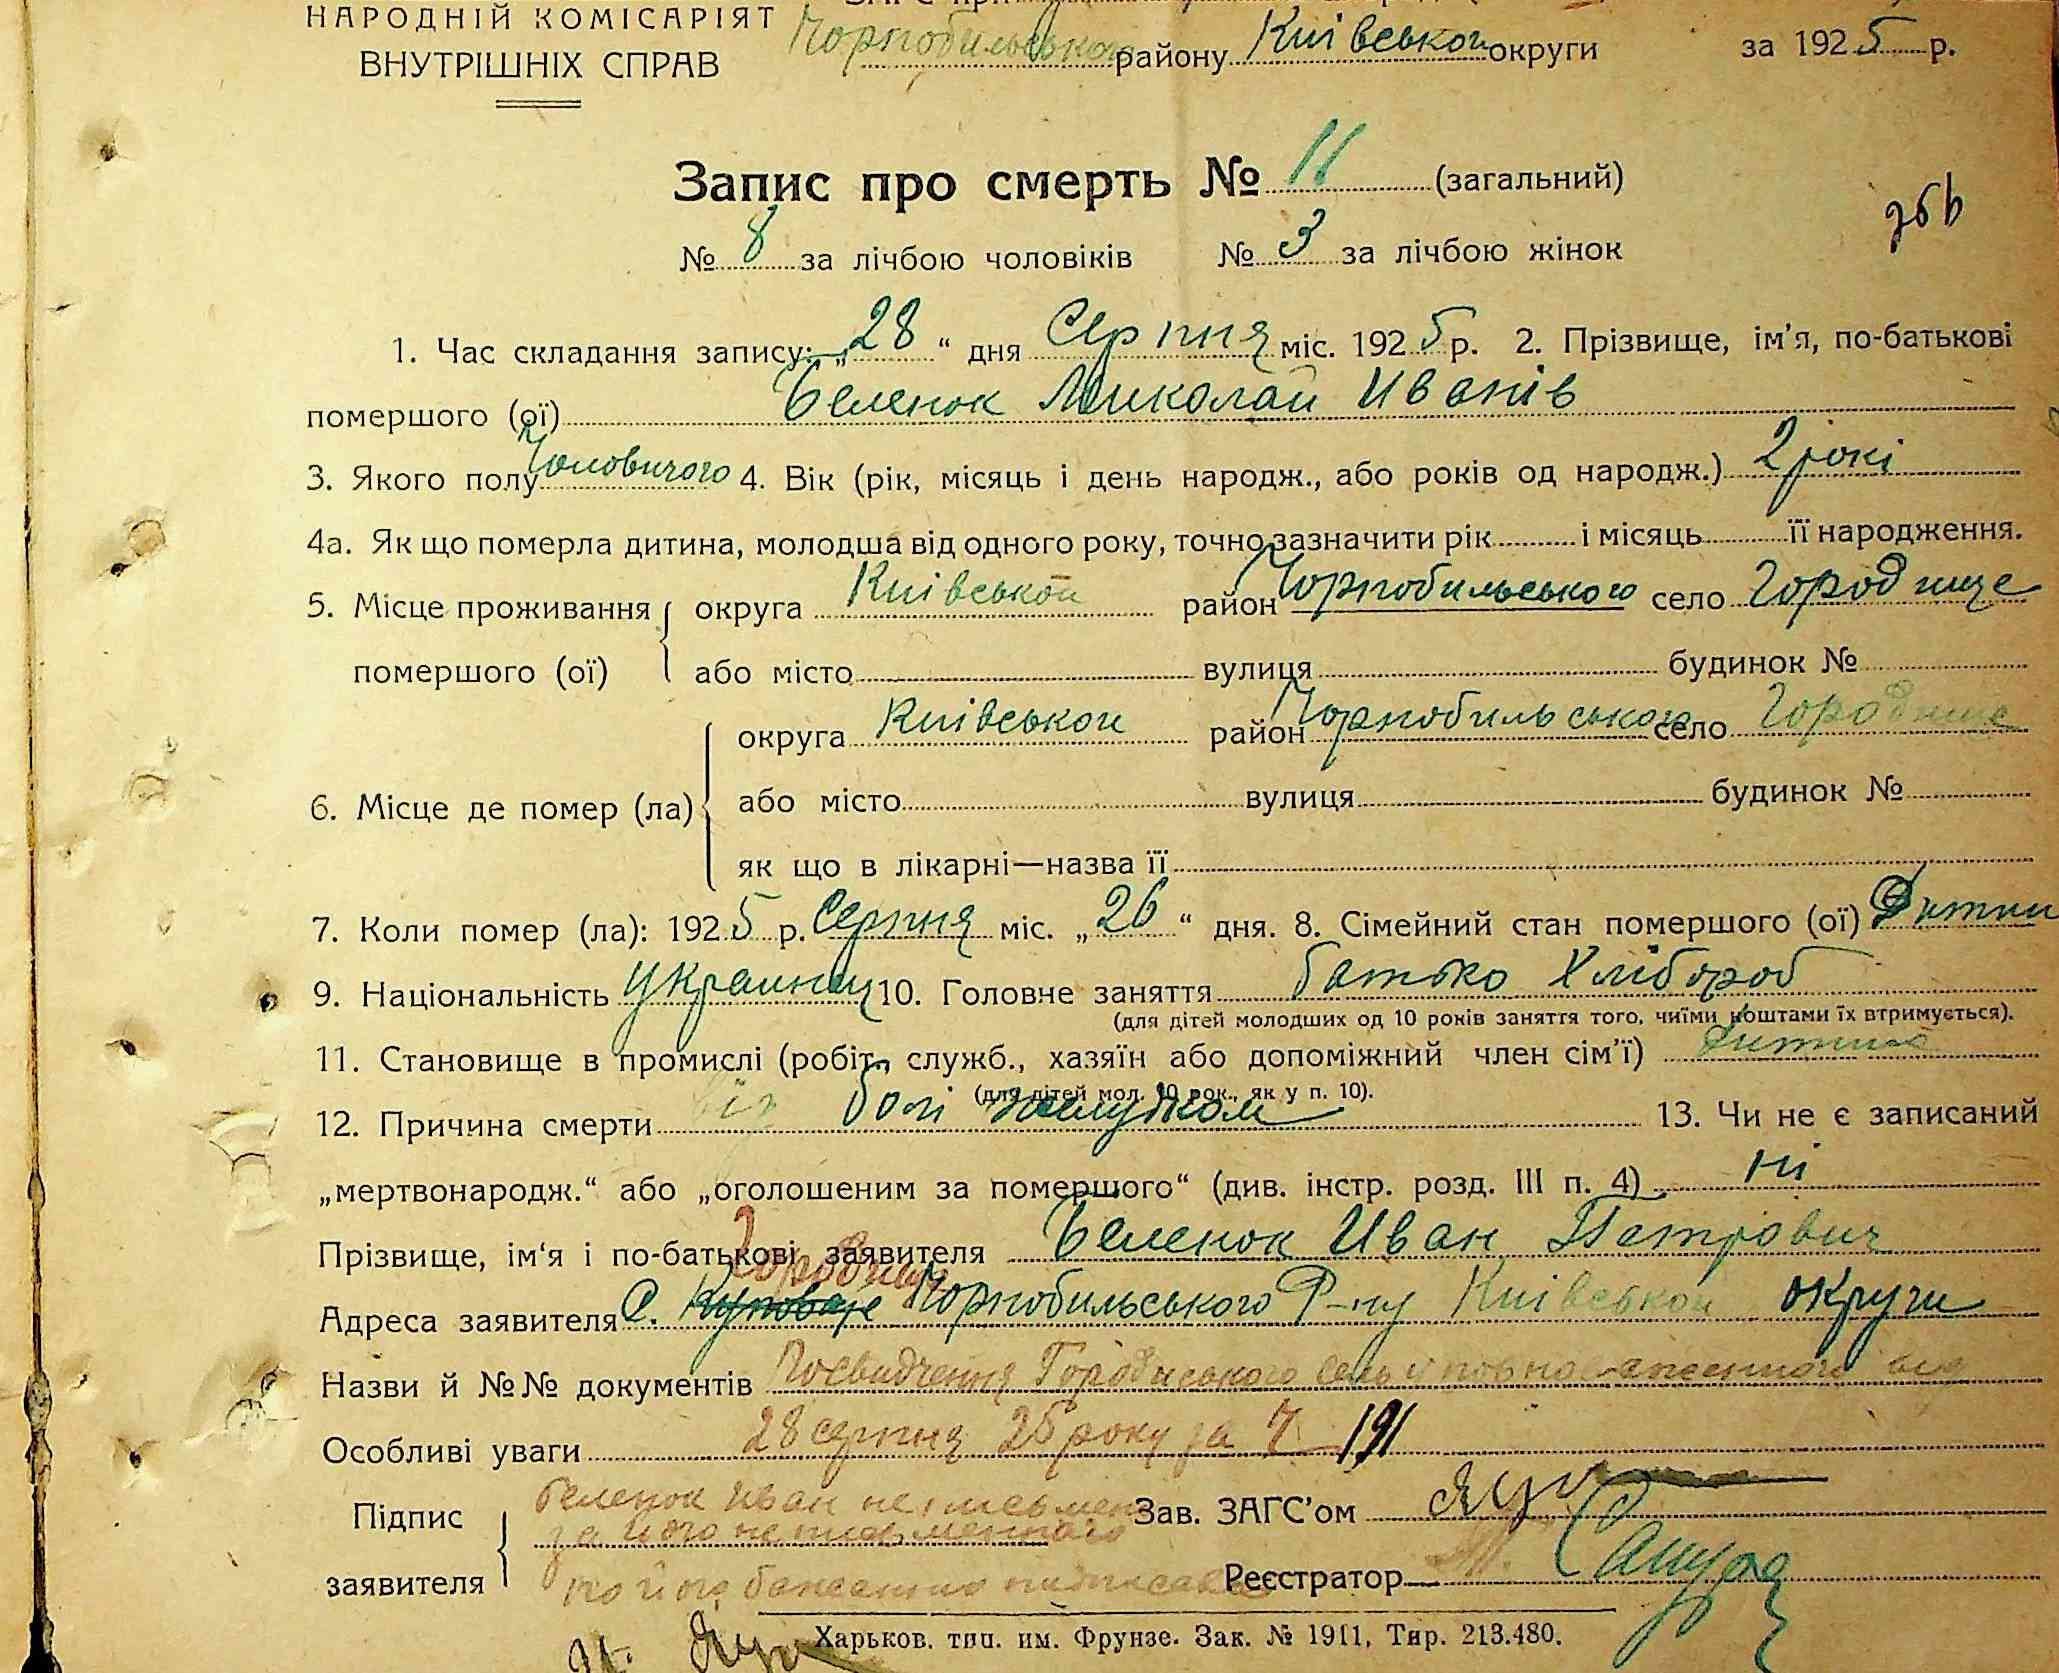 НАРОДНІЙ КОМІСАРІЯТ
ВНУТРІШНІХ СПРАВ
Чорнобильського району Київськои округи за 1925 р.
Запис про смерть № 11 (загальний)
№ 8 за лічбою чоловіків № 3 за лічбою жінок
1. Час складання запису: „28“ дня Серпня міс. 1925 р. 2. Прізвище, ім'я, по-батькові
помершого (ої) Беленок Миколай Иванів
3. Якого полу Чоловичого 4. Вік (рік, місяць і день народж., або років од народж.) 2 рокі
4а. Як що померла дитина, молодша від одного року, точно зазначити рік і місяць її народження.
5. Місце проживання округа Київськои район Чорнобильського село Городище
помершого (ої) або місто вулиця будинок №
округа Київськои район Чорнобильського село Городище
6. Місце де помер (ла) або місто вулиця будинок №
як що в лікарні—назва її
7. Коли помер (ла): 1925 р. Серпня міс. „26“ дня. 8. Сімейний стан помершого (ої) Дитина
9. Національність Украинец 10. Головне заняття батько Хлібороб
(для дітей молодших од 10 років заняття того, чиїми коштами їх втримується).
11. Становище в промислі (робіт., служб., хазяїн або допоміжний член сім'ї) Дитина
(для дітей мол. 10 рок., як у п. 10).
12. Причина смерти від болі желудком 13. Чи не є записаний
„мертвонародж.“ або „оголошеним за помершого“ (див. інстр. розд. III п. 4) ні
Прізвище, ім'я і по-батькові заявителя Беленок Иван Петрович
Городище
Адреса заявителя С. Чорнобильського Р-ну Київськои округи
Назви й №№ документів Посвидчення Городиського Сель уповноваженного від
Особливі уваги 28 серпня 25 року за 7 191
Підпис Беленок Иван неписьмен Зав. ЗАГС'ом
за його неписьменного
заявителя по його бажанню пидписався Реєстратор
Харьков. тип. им. Фрунзе. Зак. № 1911, Тир. 213.480.